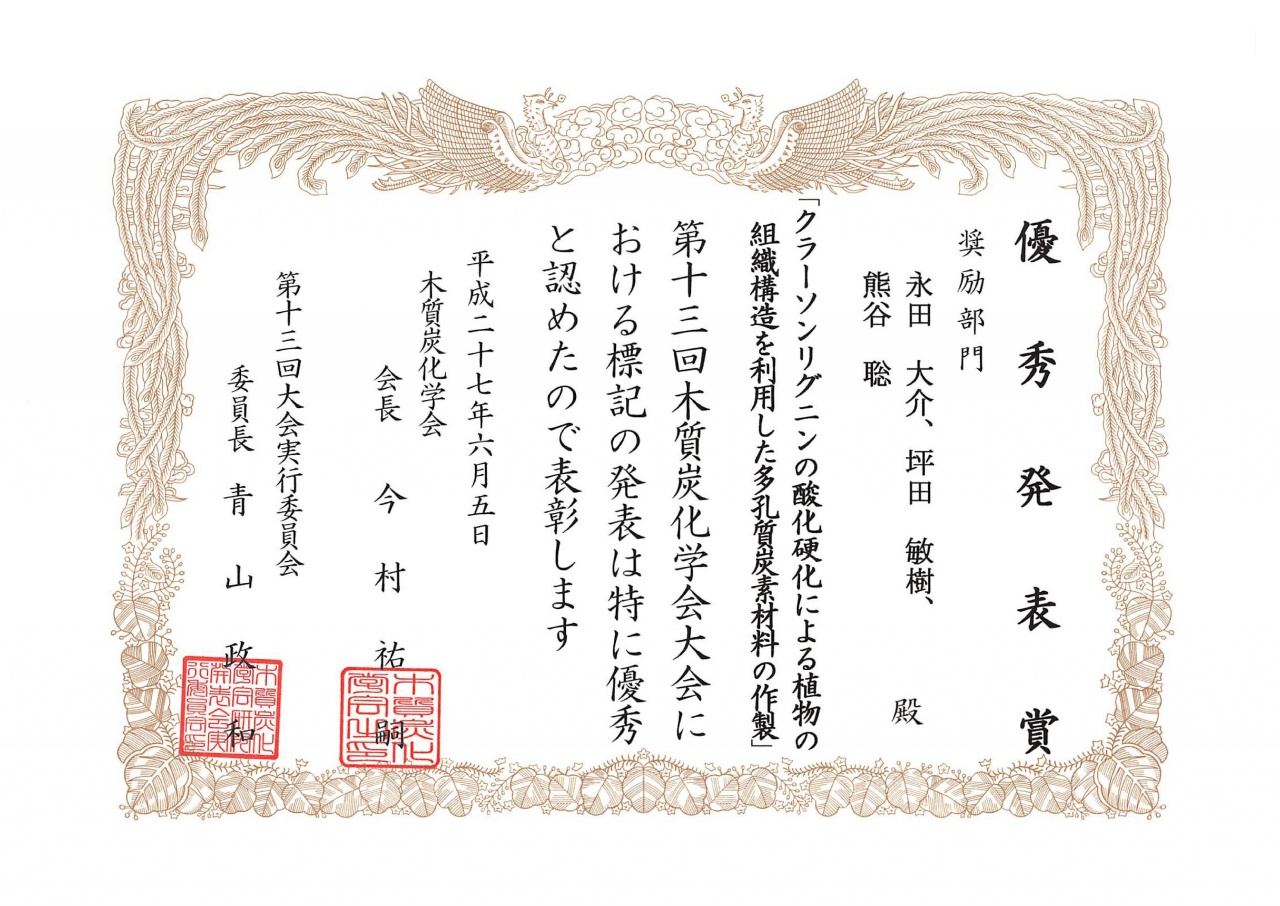 優秀発表賞
奨励部門
永田 大介、坪田 敏樹、
熊谷 聡
殿
「クラーソンリグニンの酸化硬化による植物の
組織構造を利用した多孔質炭素材料の作製」
第十三回木質炭化学会大会に
おける標記の発表は特に優秀
と認めたので表彰します
平成二十七年六月五日
木質炭化学会
会長 今村祐嗣
第十三回大会実行委員会
委員長 青山政和